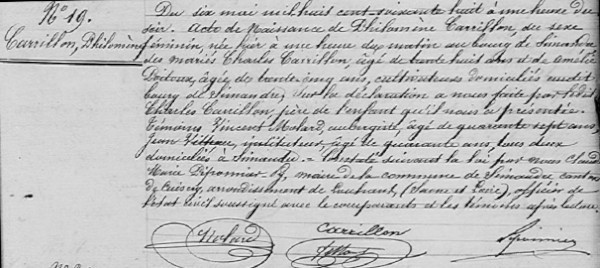 N° 19.
Carrillon, Philomène
Du six mai mil huit cent soixante huit à une heure du
soir. Acte de Naissance de Philomène Carrillon, du sexe
féminin née hier à une heure du matin au bourg de Simandre
des mariés Charles Carrillon, âgé de trente huit ans et de Amélie
âgée de trente cinq ans, cultivateurs domiciliés au dit
bourg de Simandre, Sur la déclaration à nous faite par le dit
Charles Carrillon père de l'enfant qu'il nous a présentée.
Témoins Vincent Molard, aubergiste, âgé de quarante sept ans,
Jean instituteur, âgé de quarante ans, tous deux
domiciliés à Simandre. Constaté suivant la loi par nous Claude
Marie maire de la commune de Simandre canton
de Cuisery, arrondissement de Louhans, (Saône et Loire) officier de
l'état civil soussigné avec le comparant et les témoins après lecture.
Molard Carrillon